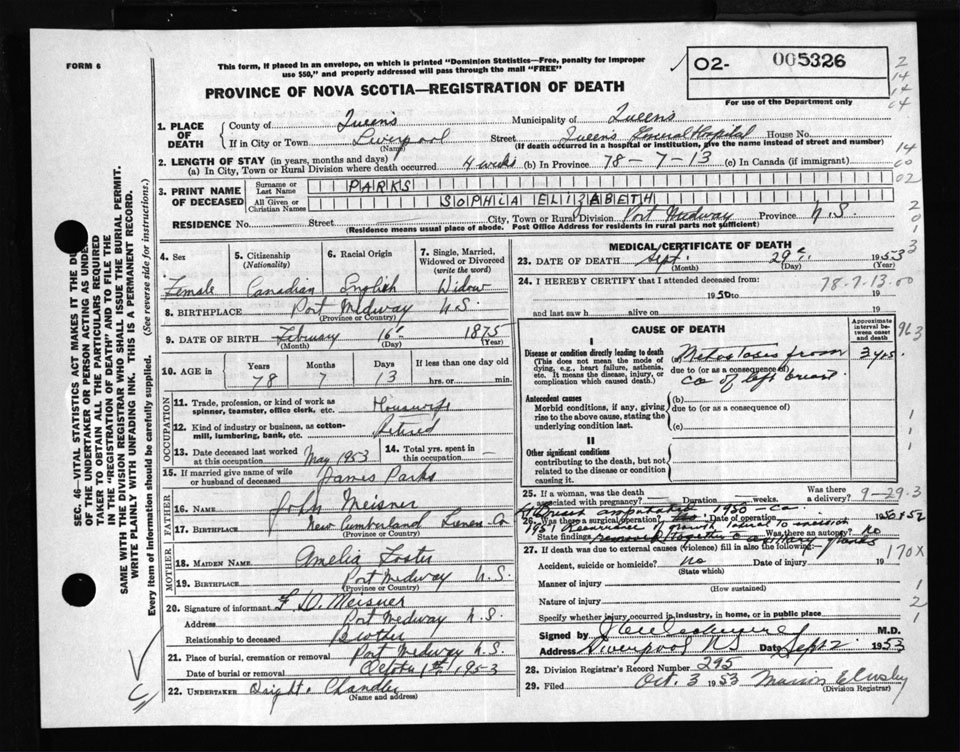 FORM 6
This form, if placed in an envelope, on which is printed "Dominion Statistics—Free, penalty for improper
use $50," and properly addressed will pass through the mail "FREE"
PROVINCE OF NOVA SCOTIA—REGISTRATION OF DEATH
02- 005326
For use of the Department only
2
14
14
04
1. PLACE OF DEATH
County of Queens Municipality of Queens
If in City or Town Liverpool (Name) Street Queens General Hospital House No.
(If death occurred in a hospital or institution, give the name instead of street and number)
2. LENGTH OF STAY (in years, months and days)
(a) In City, Town or Rural Division where death occurred 4 weeks (b) In Province 78-7-13 (c) In Canada (if immigrant)
14
00
02
3. PRINT NAME OF DECEASED
Surname or Last Name PARKS
All Given or Christian Names SOPHIA ELIZABETH
RESIDENCE No. Street City, Town or Rural Division Port Medway Province N.S.
(Residence means usual place of abode. Post Office Address for residents in rural parts not sufficient)
SEC. 46—VITAL STATISTICS ACT MAKES IT THE
OF THE UNDERTAKER OR PERSON ACTING AS
TAKER TO OBTAIN ALL THE PARTICULARS REQUIRED
IN THE "REGISTRATION OF DEATH" AND TO FILE THE
SAME WITH THE DIVISION REGISTRAR WHO SHALL ISSUE THE BURIAL PERMIT.
WRITE PLAINLY WITH UNFADING INK. THIS IS A PERMANENT RECORD.
Every item of information should be carefully supplied. (See reverse side for instructions.)
4. Sex Female
5. Citizenship (Nationality) Canadian
6. Racial Origin English
7. Single, Married, Widowed or Divorced (write the word) Widow
8. BIRTHPLACE Port Medway N.S.
(Province or Country)
9. DATE OF BIRTH February 16 1875
(Month) (Day) (Year)
10. AGE in Years 78 Months 7 Days 13 If less than one day old hrs. or min.
OCCUPATION
11. Trade, profession, or kind of work as spinner, teamster, office clerk, etc. Housewife
12. Kind of industry or business, as cotton-mill, lumbering, bank, etc. Retired
13. Date deceased last worked at this occupation May 1953
14. Total yrs. spent in this occupation —
15. If married give name of wife or husband of deceased James Parks
FATHER
16. NAME John Meisner
17. BIRTHPLACE New Cumberland Lunen. Co
(Province or Country)
MOTHER
18. MAIDEN NAME Amelia Foster
19. BIRTHPLACE Port Medway N.S.
(Province or Country)
20. Signature of informant F D. Meisner
Address Port Medway N.S.
Relationship to deceased Brother
21. Place of burial, cremation or removal Port Medway N.S.
Date of burial or removal October 1st 1953
22. UNDERTAKER Dwight Chandler
(Name and address)
MEDICAL CERTIFICATE OF DEATH
23. DATE OF DEATH Sept. 29 1953
(Month) (Day) (Year)
24. I HEREBY CERTIFY that I attended deceased from: 78-7-13-00
1950 to 19
and last saw h alive on 19
CAUSE OF DEATH
Approximate interval between onset and death
963
I
Disease or condition directly leading to death
(This does not mean the mode of dying, e.g., heart failure, asthenia, etc. It means the disease, injury, or complication which caused death.)
Metastases from 3 yrs.
due to (or as a consequence of)
ca of left breast
Antecedent causes
Morbid conditions, if any, giving rise to the above cause, stating the underlying condition last.
(b)
due to (or as a consequence of)
(c)
II
Other significant conditions
contributing to the death, but not related to the disease or condition causing it.
25. If a woman, was the death associated with pregnancy? Duration weeks. Was there a delivery? 9-29-3
Lt Breast amputated 1950 - ca.
26. Was there a surgical operation? Date of operation 1950+52
1951 Recurrence of growth lateral to incision
State findings removed together c axillary glands Was there an autopsy? No
27. If death was due to external causes (violence) fill in also the following: 170X
Accident, suicide or homicide? no Date of injury 19
(State which)
Manner of injury
(How sustained)
Nature of injury
Specify whether injury occurred in industry, in home, or in public place
Signed by M.D.
Liverpool NS Date Sept 2 1953
28. Division Registrar's Record Number 295
29. Filed Oct. 3 1953
(Division Registrar)